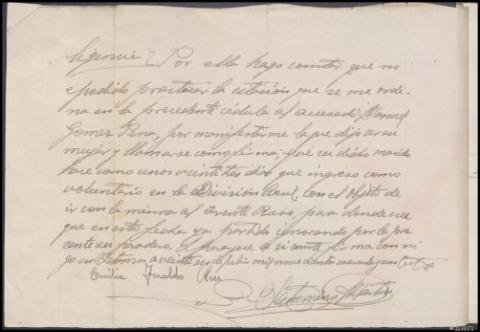 ligencia / Por ella hago constar que no
e podido practicar la citacion que se me orde-
na en la precedente cédula al acusado Manuel
Gomez Pena, por manifestarme la que dijo ser su
mujer y llamarse como firma; que su dicho marido
hace como unos veintitres dias que ingreso como
voluntario en la Division Azul, con el objeto de
ir con la misma al frente Ruso, para donde cree
que en esta fecha ya partido ignorando por la pre-
sente su paradero. Y para que asi conste firma conmi-
go en a veinte de mil novecientos cuarenta y
Emilia Giraldo Ruz